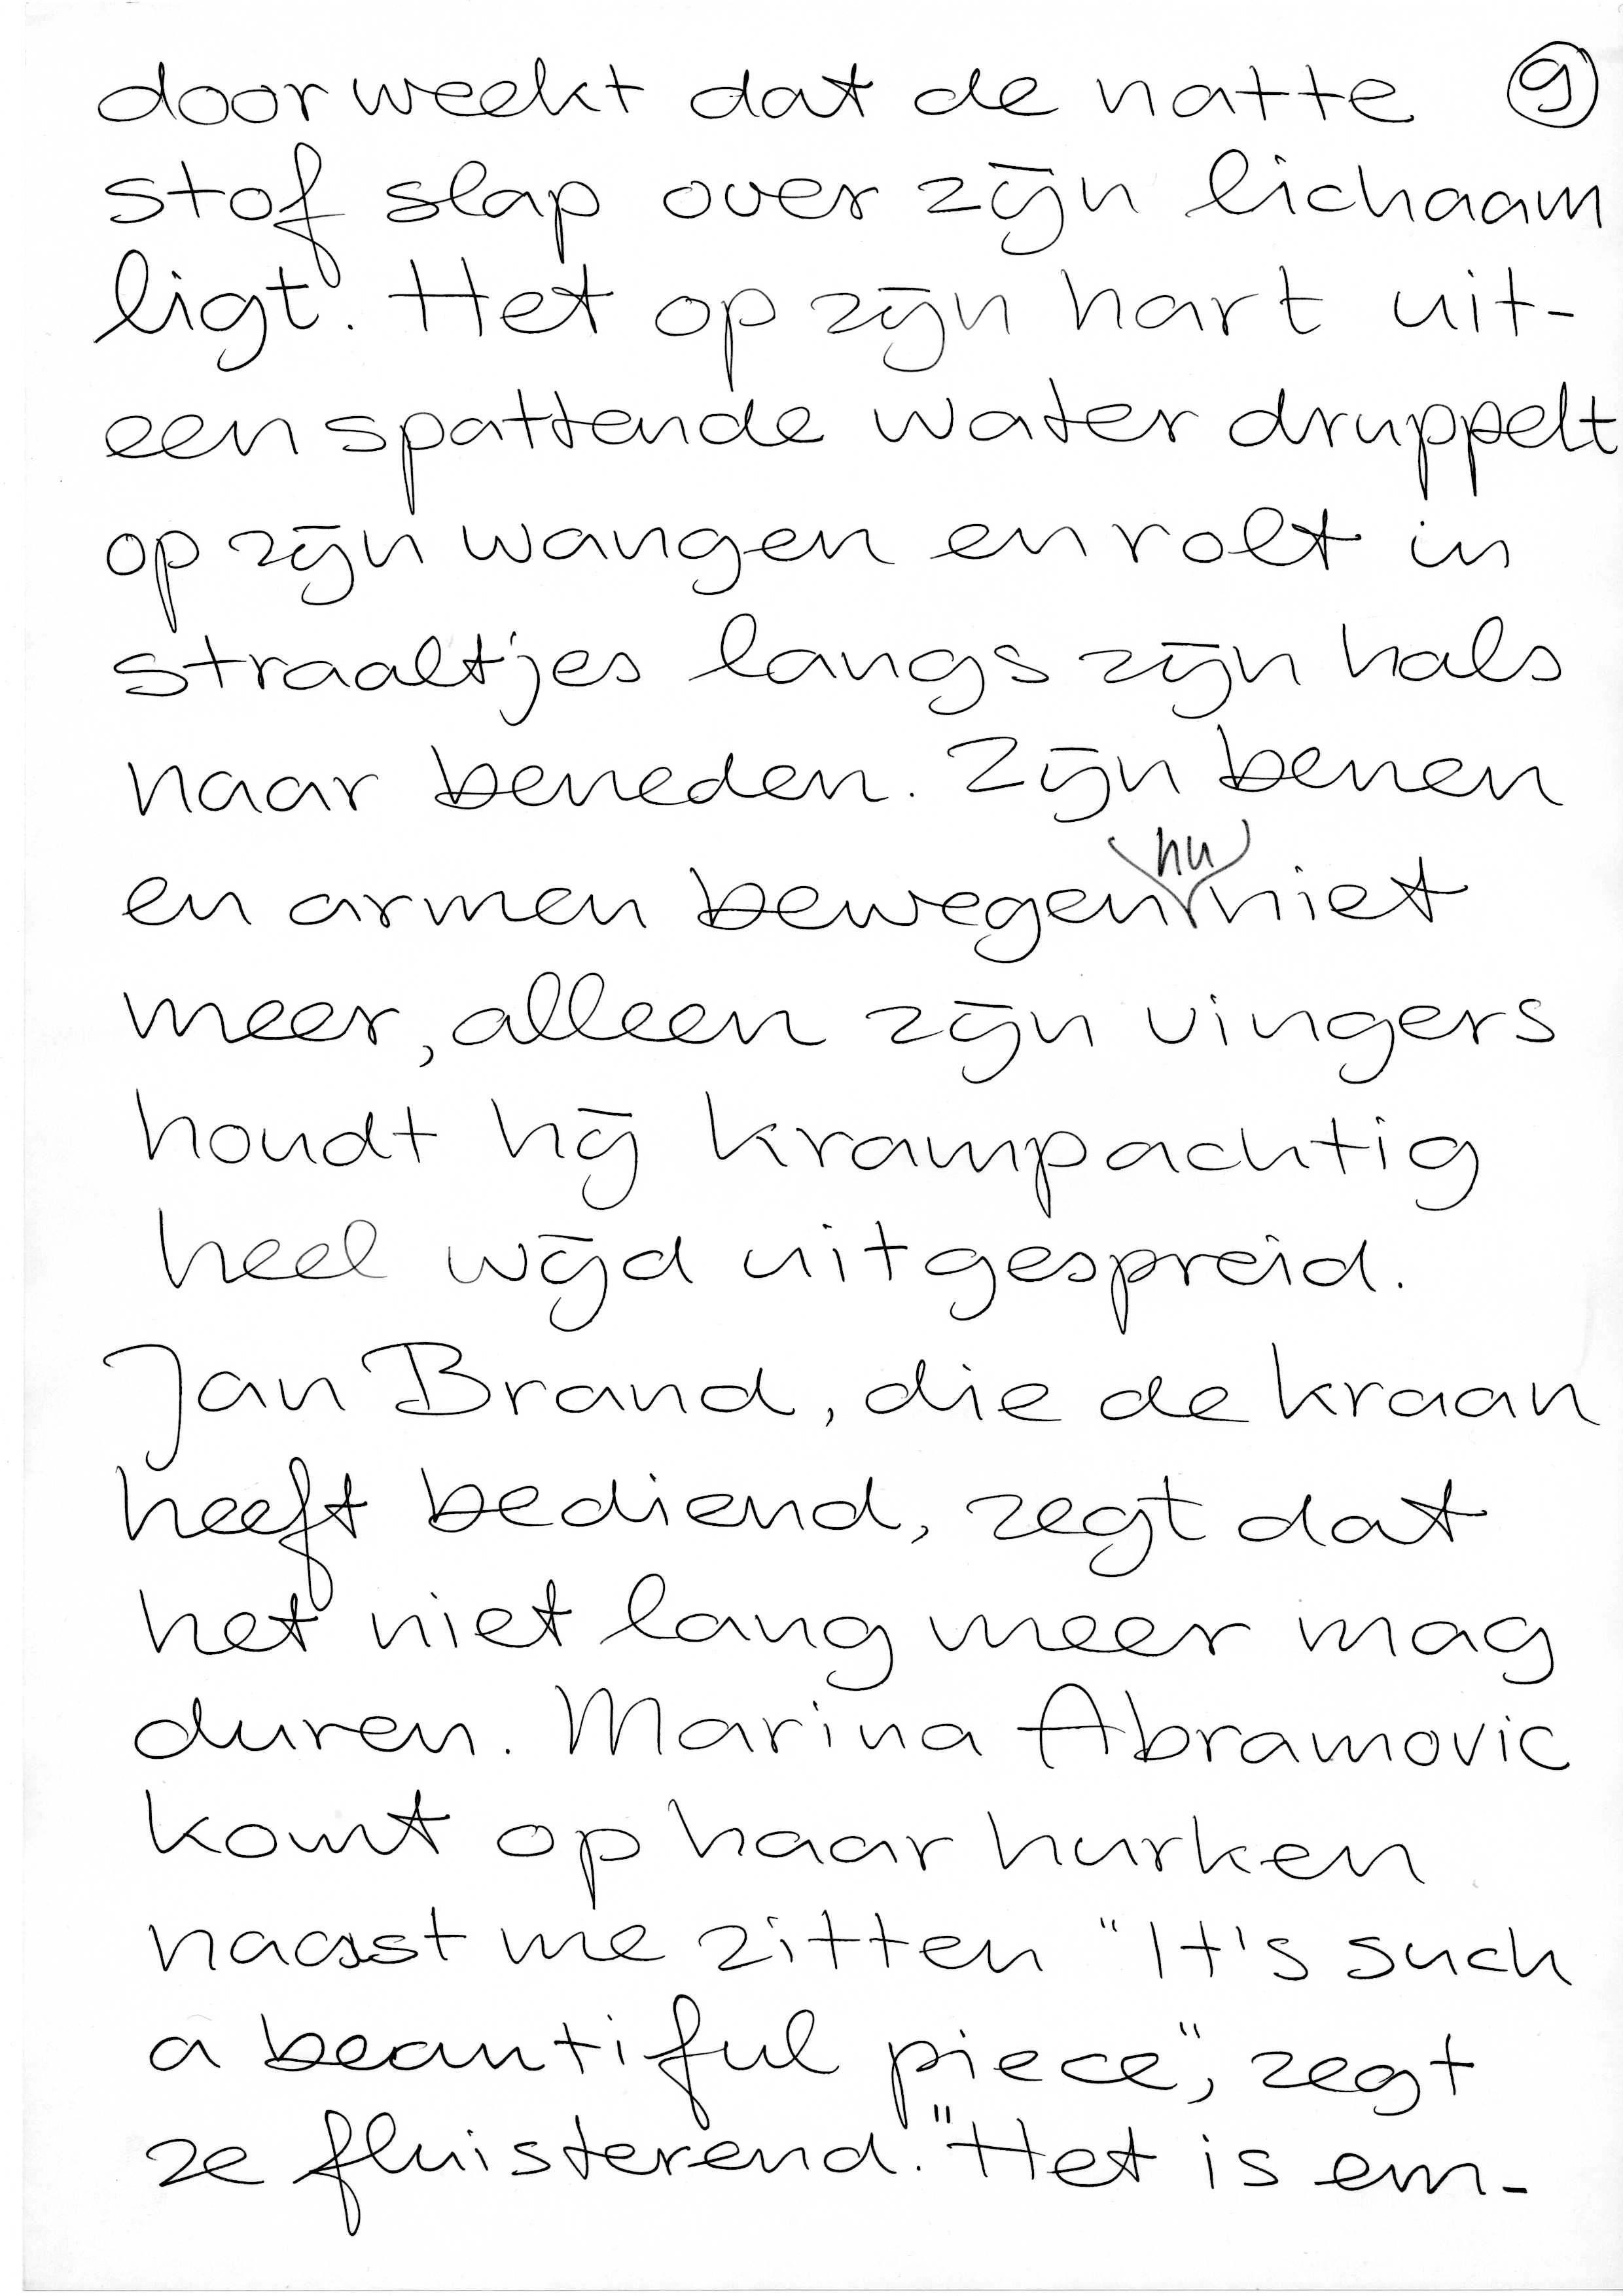 doorweekt dat de natte 9
stof slap over zijn lichaam
ligt. Het op zijn hart uit-
eenspattende water druppelt
op zijn wangen en rolt in
straaltjes langs zijn hals
naar beneden. Zijn benen
nu
en armen bewegen niet
meer, alleen zijn vingers
houdt hij krampachtig
heel wijd uitgespreid.
Jan Brand, die de kraan
heeft bediend, zegt dat
het niet lang meer mag
duren. Marina Abramovic
komt op haar hurken
naast me zitten "It's such
a beautiful piece", zegt
ze fluisterend. "Het is em-